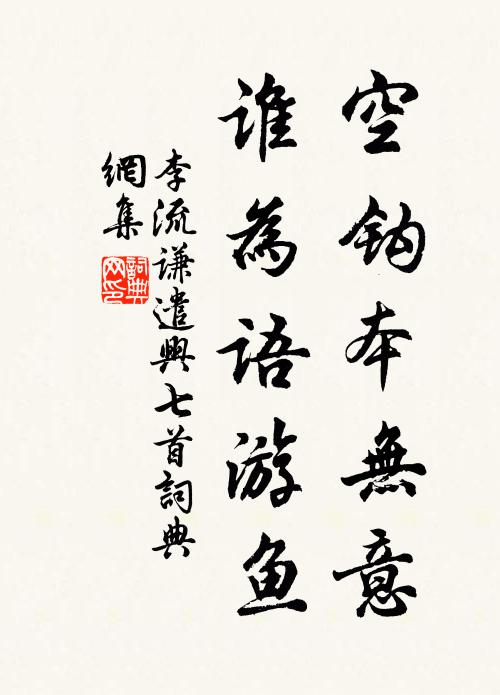 空鈎本無意
誰為語游鱼
李流谦遣興七首詞典
網集
詞典網印